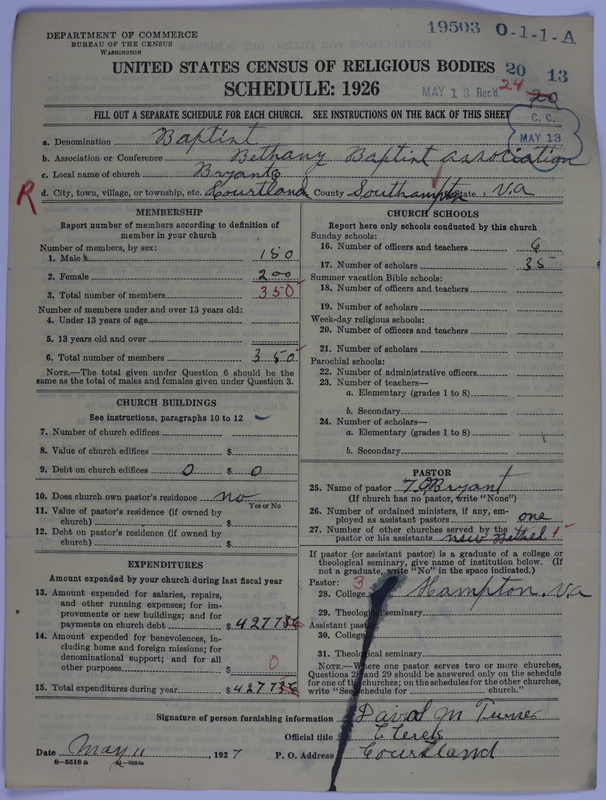 DEPARTMENT OF COMMERCE
BUREAU OF THE CENSUS
WASHINGTON
19503 O-1-1-A
UNITED STATES CENSUS OF RELIGIOUS BODIES
20 13
SCHEDULE: 1926
MAY 13 Rec'd
24
20
FILL OUT A SEPARATE SCHEDULE FOR EACH CHURCH. SEE INSTRUCTIONS ON THE BACK OF THIS SHEET
C. C.
MAY 13
a. Denomination Baptist
b. Association or Conference Bethany Baptist association
c. Local name of church Bryants
R
d. City, town, village, or township, etc. Courtland County Southampton State Va
MEMBERSHIP
Report number of members according to definition of
member in your church
Number of members, by sex:
1. Male 150
2. Female 200
3. Total number of members 350
Number of members under and over 13 years old:
4. Under 13 years of age
5. 13 years old and over
6. Total number of members 350
NOTE.—The total given under Question 6 should be the
same as the total of males and females given under Question 3.
CHURCH BUILDINGS
See instructions, paragraphs 10 to 12
7. Number of church edifices
8. Value of church edifices $
9. Debt on church edifices 0 $ 0
10. Does church own pastor's residence no
Yes or No
11. Value of pastor's residence (if owned by
church) $
12. Debt on pastor's residence (if owned by
church) $
EXPENDITURES
Amount expended by your church during last fiscal year
13. Amount expended for salaries, repairs,
and other running expenses; for im-
provements or new buildings; and for
payments on church debt $
14. Amount expended for benevolences, in-
cluding home and foreign missions; for
denominational support; and for all
other purposes $ 0
15. Total expenditures during year $
CHURCH SCHOOLS
Report here only schools conducted by this church
Sunday schools:
16. Number of officers and teachers 6
17. Number of scholars 35
Summer vacation Bible schools:
18. Number of officers and teachers
19. Number of scholars
Week-day religious schools:
20. Number of officers and teachers
21. Number of scholars
Parochial schools:
22. Number of administrative officers
23. Number of teachers—
a. Elementary (grades 1 to 8)
b. Secondary
24. Number of scholars—
a. Elementary (grades 1 to 8)
b. Secondary
PASTOR
25. Name of pastor Bryant
(If church has no pastor, write "None")
26. Number of ordained ministers, if any, em-
ployed as assistant pastors one
27. Number of other churches served by the
pastor or his assistants new Bethel 1
If pastor (or assistant pastor) is a graduate of a college or
theological seminary, give name of institution below. (If
not a graduate, write "No" in the space indicated.)
Pastor: 3
28. College Hampton. Va
29. Theological seminary
Assistant pastor:
30. College
31. Theological seminary
NOTE.—Where one pastor serves two or more churches,
Questions 28 and 29 should be answered only on the schedule
for one of the churches; on the schedules for the other churches,
write "See schedule for church."
Signature of person furnishing information David M Turner
Official title Clerk
Date May 11, 1927 P. O. Address Courtland
8-5518 a